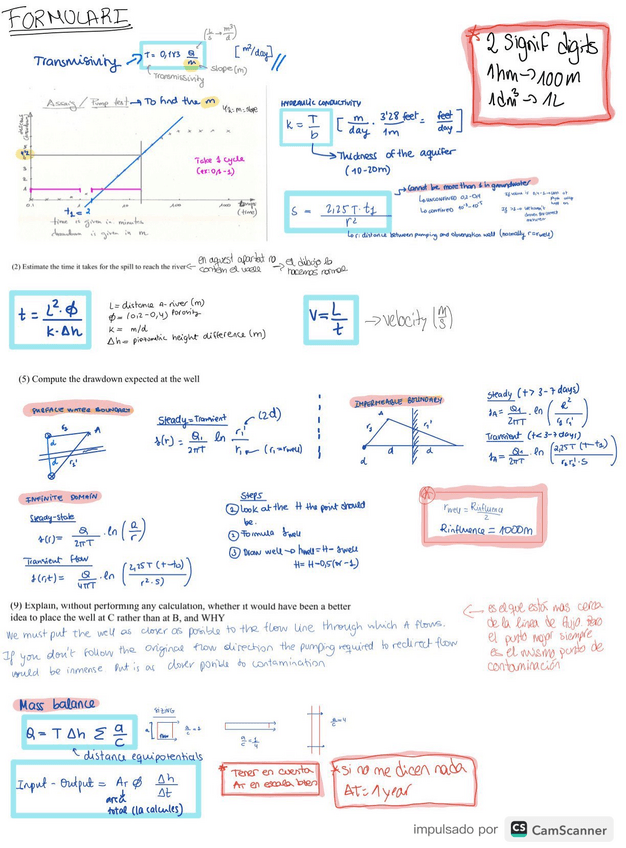 FORMULARI
Transmisivity → T = 0,183 Q/m [m²/day] //
(l/s → m³/d)
Transmissivity
slope (m)
Assaig / Pump test → To find the m
Take 1 cycle
(ex: 0,1-1)
0.1
t₁ = 2
time is given in minutes
drawdown is given in m.
HYDRAULIC CONDUCTIVITY
K = T/b [m/day · 3'28 feet/1m = feet/day]
Thickness of the aquifer
(10-20m)
* 2 Signif digits
1hm → 100m
1dm³ → 1L
S = 2,25 T · t₁ / r²
Cannot be more than 1 in groundwater
r: distance between pumping and observation well (normally r=rwell)
(2) Estimate the time it takes for the spill to reach the river
en aquest apartat no
contem el well
→ el dibujo lo
hacemos normal
t = L² · Φ / K · Δh
L = distance A-river (m)
Φ = (0,2-0,4) Porosity
K = m/d
Δh = piezometric height difference (m)
V = L/t → velocity (m/s)
(5) Compute the drawdown expected at the well
SURFACE WATER BOUNDARY
Steady = Transient
(2d)
s(r) = Q₁/2πT ln r₁'/r₁
(r₁=rwell)
IMPERMEABLE BOUNDARY
Steady (t > 3-7 days)
sA = Q₁/2πT · ln (R²/r₁ r₁')
Transient (t<3-7 days)
sA = Q₁/2πT · ln (2,25T (t-t₀)/r₂ r₂' · S)
INFINITE DOMAIN
Steady-state
s(r) = Q/2πT · ln (R/r)
Transient Flow
s(r,t) = Q/4πT · ln (2,25T (t-t₀)/r² · S)
Steps
① Look at the H the point should
be.
② Formula swell
③ Draw well → hwell = H - swell
rwell = Rinfluence/2
Rinfluence = 1000m
(9) Explain, without performing any calculation, whether it would have been a better
idea to place the well at C rather than at B, and WHY
We must put the well as closer as posible to the flow line through which A flows.
If you don't follow the original flow direction the pumping required to redirect flow
would be inmense. Put is as closer posible to contamination
← es el que está mas cerca
de la linea de flujo, pero
el punto mejor siempre
es el mismo punto de
contaminación
Mass balance
Q = T Δh Σ a/c
distance equipotentials
a/c = 1/4
a/c = 4
Input - Output = AT Φ Δh/Δt
area
total (la calcules)
* Tener en cuenta
AT en escala bien
* Si no me dicen nada
ΔT = 1 year
impulsado por CS CamScanner